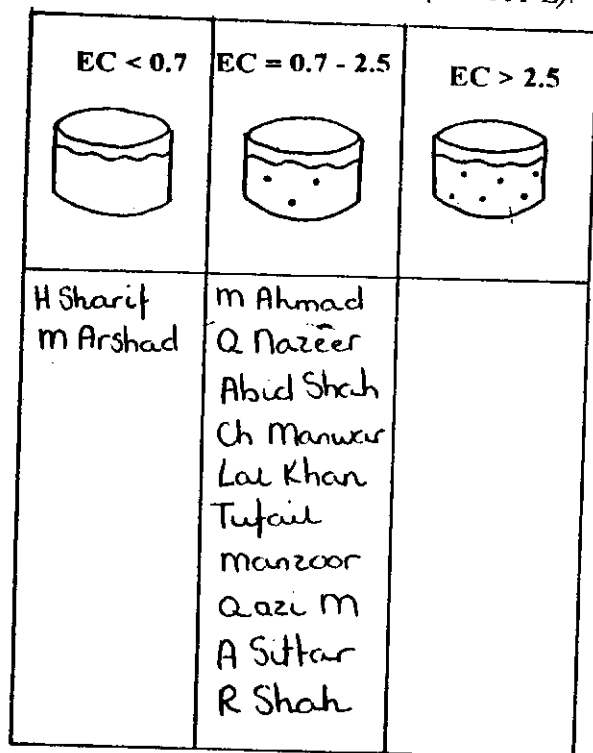 EC < 0.7
EC = 0.7 - 2.5
EC > 2.5
H Sharif
M Arshad
M Ahmad
Q Nazeer
Abid Shah
Ch Manwar
Lal Khan
Tufail
Manzoor
Qazi M
A Sittar
R Shah